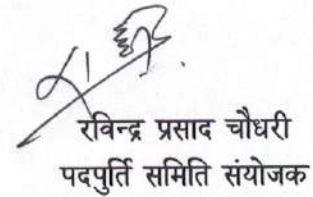 रविन्द्र प्रसाद चौधरी
पदपुर्ति समिति संयोजक